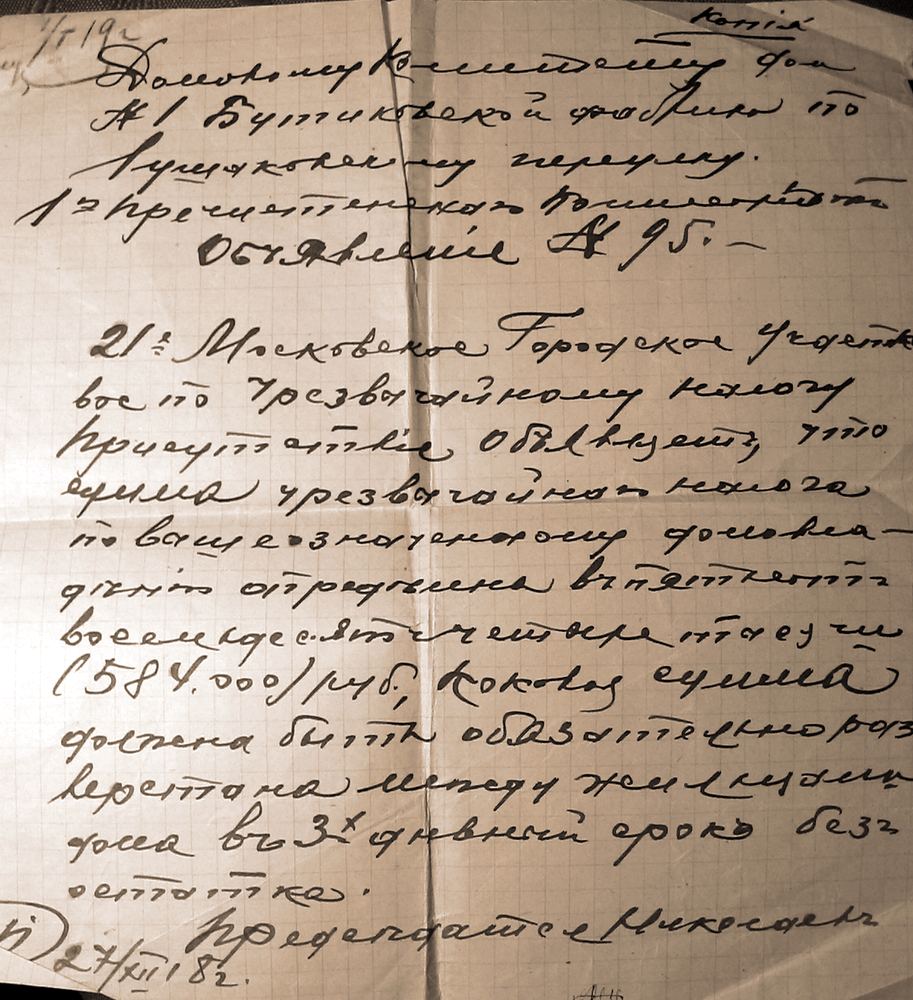 1/I 19 г
Копія
Домовому Комитету дом
№ 1 Бутиковской фабрики по
переулку.
1го Пречистенскаго Комиссаріата
Объявленіе № 95. –
21е Московское Городское Участко
вое по Чрезвычайному налогу
Присутствіе объявляетъ, что
сумма чрезвычайнаго налога
по вашеозначенному домовла-
дѣнію опредѣлена въ пятьсотъ
восемьдесятъ четыре тысячи
(584.000) руб., каковая сумма
должна быть обязательно раз
верстана между жильцами
дома въ 3х дневный срокъ безъ
остатка.
Предсѣдатель Николаевъ
27/XII 18 г.